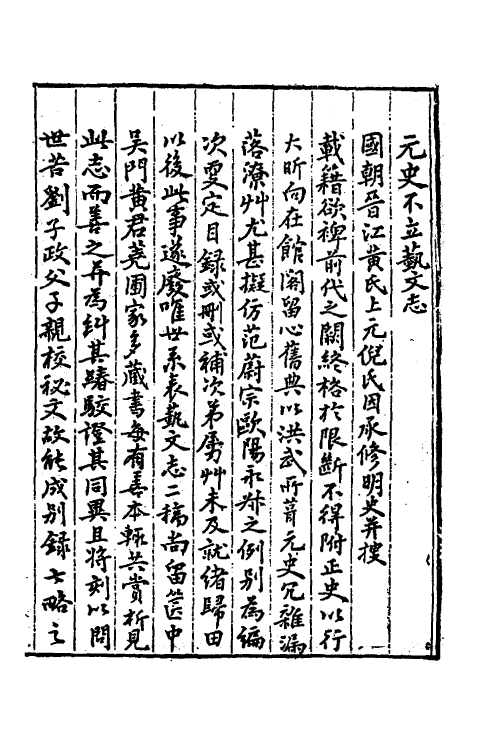 元史不立藝文志
國朝晉江黃氏上元倪氏因承修明史并搜
載籍欲裨前代之闕終格於限斷不得附正史以行
大昕向在館閣留心舊典以洪武所葺元史冗雜漏
落潦艸尤甚擬仿范蔚宗歐陽永叔之例別為編
次更定目録或刪或補次弟屬艸未及就緒歸田
以後此事遂廢唯世系表藝文志二稿尚留篋中
吳門黃君蕘圃家多藏書每有善本輒共賞析見
此志而善之并為糾其踳駁證其同異且將刻以問
世昔劉子政父子親校祕文故能成別録七略之